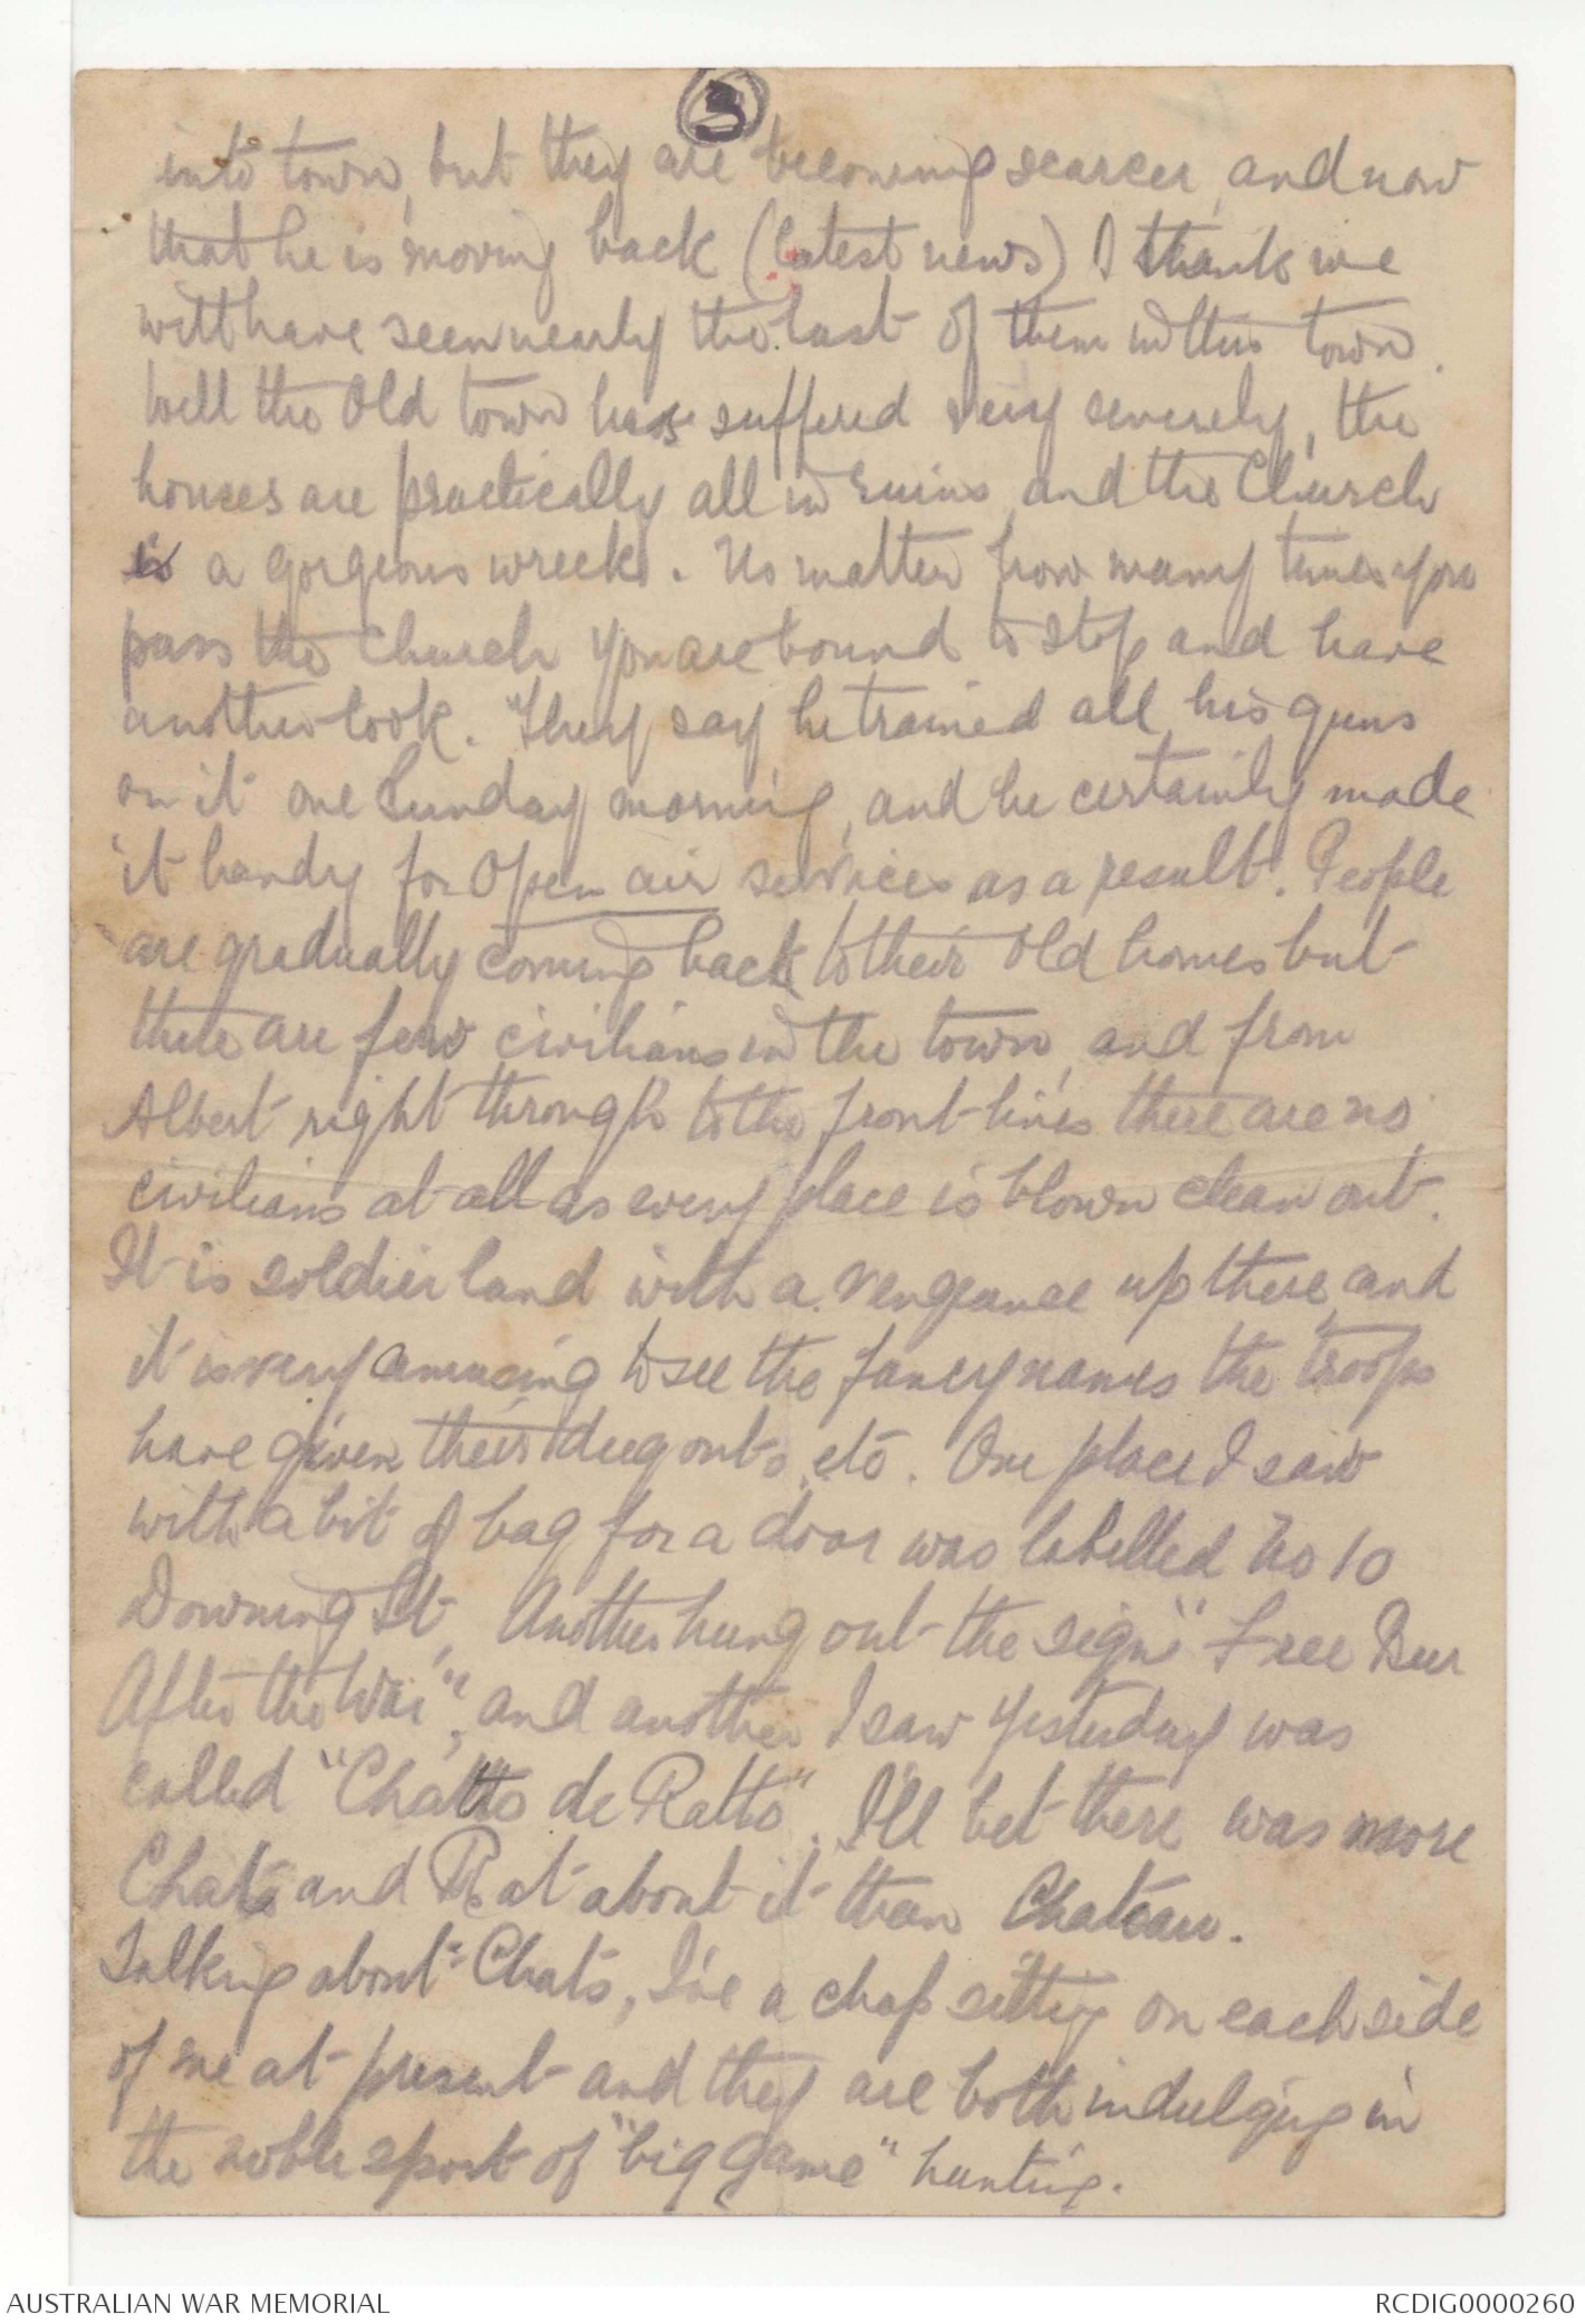 3
into town, but they are becoming scarcer, and now
that he is moving back (latest news) I think we
will have seen nearly the last of them in this town.
Well the Old town has suffered very severely, the
houses are practically all in ruins and the Church
is a gorgeous wreck. No matter how many times you
pass the Church you are bound to stop and have
another look. They say he trained all his guns
on it one Sunday morning, and he certainly made
it handy for Open air services as a result. People
are gradually coming back to their old homes but
there are few civilians in the town, and from
Albert right through to the front lines there are no
civilians at all as every place is blown clean out.
It is soldier land with a vengeance up there, and
it is very amusing to see the fancy names the troops
have given their dugouts, etc. One place I saw
with a bit of bag for a door was labelled No 10
Downing St, Another hung out the sign "Free Beer
After the War", and another I saw yesterday was
called "Chatto de Ratto". I'll bet there was more
Chats and Rat about it than Chateau.
Talking about Chats, I've a chap sitting on each side
of me at present and they are both indulging in
the noble sport of "big game" hunting.
AUSTRALIAN WAR MEMORIAL
RCDIG0000260